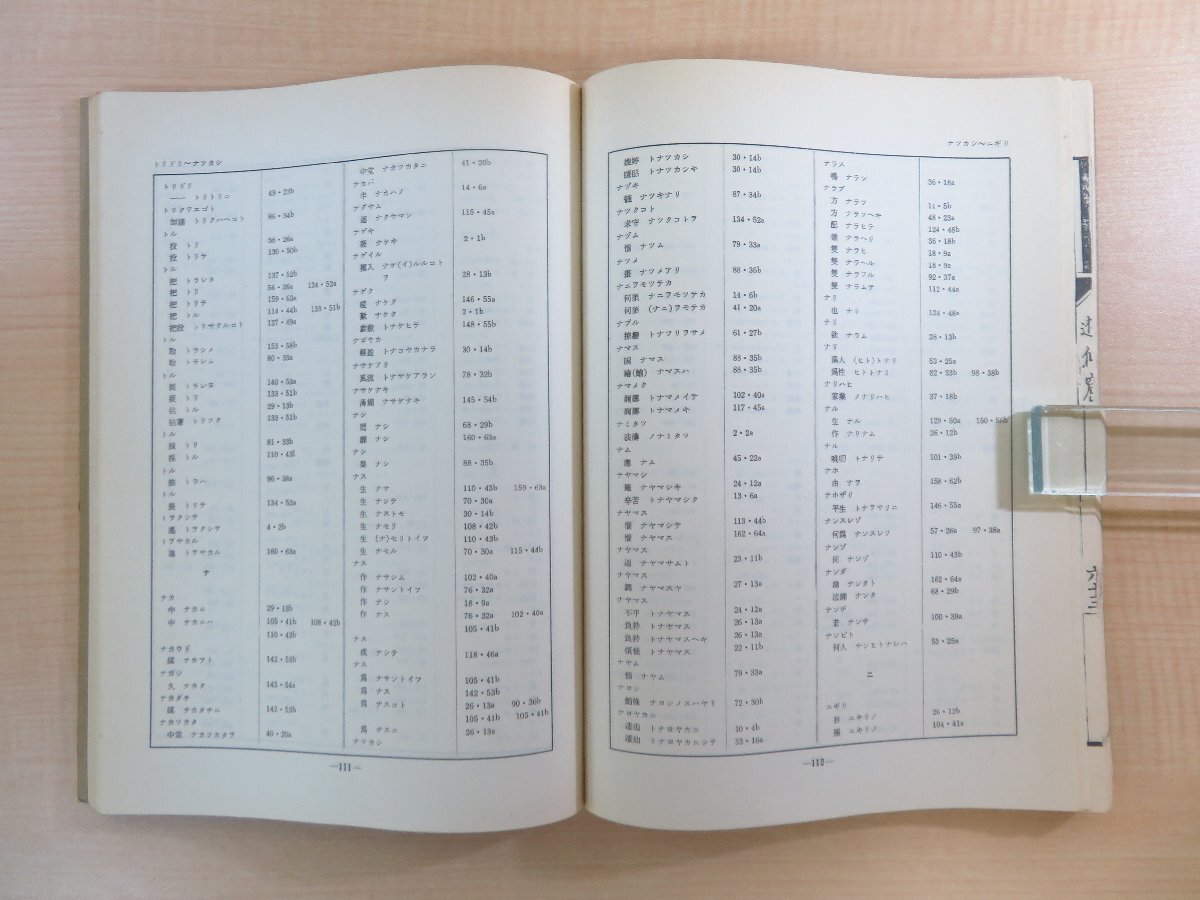 トリドリ〜ナツカシ
トリドリ
―― トリトリニ 49・23b
トリクワエゴト
加諸 トリクハヘコト 86・34b
トル
投 トリ 56・26a
投 トリテ 130・50b
トル
把 トランヌ 137・52b
把 トリ 56・26a 134・52a
把 トリテ 159・63a
把 トル 114・44b 133・51b
把投 トリサクルコト 127・49a
トル
取 トラシメ 153・58b
取 トラシニ 80・33a
トル
捉 トランヌ 140・53a
捉 トリ 133・51b
拈 トル 29・13b
拈著 トリツク 133・51b
トル
採 トリ 81・33b
採 トル 110・43l
トル
トラハ 96・38a
トル
トリテ 134・52a
トヲクシテ
遙 トヲクシテ 4・2b
トヲサカル
遠 トヲサカル 160・63a
ナ
ナカ
中 ナカニ 29・13b
中 ナカニハ 105・41b 108・42b
110・43b
ナカウド
媒 ナカウト 142・53b
ナガシ
久 ナカク 143・54a
ナカダチ
媒 ナカタチニ 142・52b
ナカツカタ
中堂 ナカツカタヲ 40・20a
中堂 ナカツカタニ 41・20b
ナカバ
半 ナカハノ 14・6a
ナグサム
遣 ナクサマン 115・45a
ナゲキ
嗟 ナケキ 2・1b
ナゲイル
ナケ(イ)ルルコトヲ 28・13b
ナゲク
嗟 ナケク 146・55a
歎 ナケク 2・1b
歎歎 トナケヒテ 148・55b
ナゴヤカ
輕盈 トナコヤカナラ 30・14b
ナサケアリ
風流 トナサケアラン 78・32b
ナサケナキ
ナサケナキ 145・54b
ナシ
罔 ナシ 68・29b
靡 ナシ 160・63a
ナシ
ナシ 88・35b
ナス
生 ナサ 110・43b 159・63a
生 ナシテ 70・30a
生 ナストモ 30・14b
生 ナセリ 108・42b
生 (ナ)セリトイフ 110・43b
生 ナセル 70・30a 115・44b
ナス
作 ナサシム 102・40a
作 ナサントイフ 76・32a
作 ナシ 18・9a
作 ナス 76・32a 102・40a
105・41b
ナス
成 ナシテ 118・46a
ナス
爲 ナサントイフ 105・41b
爲 ナス 142・53b
爲 ナスコト 26・13a 90・36b
105・41b 105・41b
爲 ナスニ 26・13a
ナツカシ
―111―
ナツカシ〜ニギリ
トナツカシ 30・14b
トナツカシキ 30・14b
ナヅキ
ナツキナリ 87・34b
ナツクコト
求守 ナツクコトヲ 134・52a
ナヅム
ナツム 79・33a
ナツメ
棗 ナツメアリ 88・36b
ナニヲモツテカ
何須 ナニヲモツテカ 14・6b
何須 (ナニ)ヲモテカ 41・20a
ナブル
トナフリヲサメ 61・27b
ナマス
ナマス 88・35b
繪(鱠) ナマスハ 88・35b
ナマメク
婀娜 トナマメイテ 102・40a
婀娜 トナマメキ 117・45a
ナミタツ
波濤 ノナミタツ 2・2a
ナム
應 ナム 45・22a
ナヤマシ
ナヤマシキ 24・12a
辛苦 トナヤマシク 13・6a
ナヤマス
惱 ナヤマシテ 113・44b
惱 ナヤマス 162・64a
ナヤマス
ナヤマサムト 23・11b
ナヤマス
ナヤマスヤ 27・13a
ナヤマス
不平 トナヤマス 24・12a
負持 トナヤマス 26・13a
負持 トナヤマスヘキ 26・13a
煩惱 トナヤマス 22・11b
ナヤム
惱 ナヤム 79・33a
ナヨシ
ナヨシノスハヤリ 72・30b
ナヨヤカニ
トナヨヤカニ 10・4b
トナヨヤカニシテ 33・16a
ナラス
鳴 ナラシ 36・18a
ナラブ
方 ナラフ 11・5b
方 ナラフヘキ 48・23a
配 ナラヒテ 124・48b
ナラヘリ 36・18b
雙 ナラヒ 18・9a
雙 ナラヘル 18・9a
雙 ナラフル 92・37a
雙 ナラムテ 112・44a
ナリ
也 ナリ 124・48a
ナリ
欲 ナラム 28・13b
ナリ
爲人 (ヒト)トナリ 53・25a
爲性 ヒトトナリ 82・33b 98・38b
ナリハヒ
家業 ノナリハヒ 37・18b
ナル
生 ナル 129・50a 150・56b
作 ナリナム 26・12b
ナル
トナリテ 101・39b
ナホ
由 ナヲ 158・62b
ナホザリ
平生 トナヲサリニ 146・55a
ナンスレゾ
何爲 ナンスレソ 57・26a 97・38a
ナンゾ
何 ナンゾ 110・43b
ナンダ
涙 ナンタト 162・64a
泣涕 ナンタ 68・29b
ナンヂ
若 ナンチ 100・39a
ナンビト
何人 ナンヒトナレハ 53・25a
ニ
ニギリ
ニキリノ 26・12b
ニキリノ 104・41a